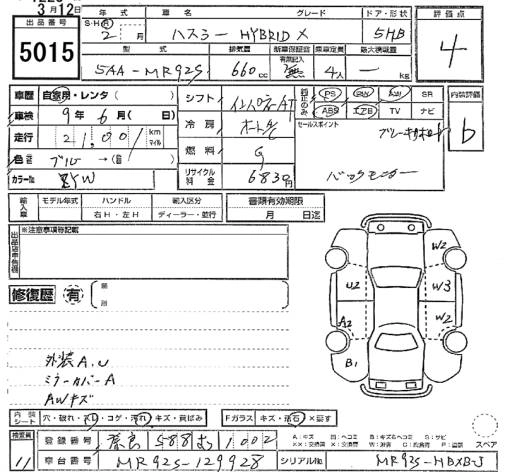 3月12日
出品番号
5015
年式
S・H・R
2 月
車名
ハスラー HYBRID X
グレード
ドア・形状
5HB
評価点
4
型式
5AA-MR92S
排気量
660 cc
新車保証書
有無記入
無
乗車定員
4人
最大積載量
ー kg
車歴 自家用・レンタ ( )
車検 9年 6月 ( 日)
走行 21,001 km マイル
色 ブルー → (
カラー№ ZYW
シフト インパネAT
冷房 オートAC
燃料 G
リサイクル料金 6830円
PS PW AW SR
ABS エアB TV ナビ
セールスポイント
ブレーキサポート
バックモニター
内装評価
b
輸入車
モデル年式
ハンドル
右H・左H
輸入区分
ディーラー・並行
書類有効期限
月 日迄
※注意事項等記載
修復歴 有
外装A.U
ミラーカバーA
AWキズ
W2
U2
W3
A2
W2
B1
内装シート
穴・破れ・スレ・コゲ・汚れ・キズ・黄ばみ
Fガラス キズ・飛石・X要す
スペア
検査員
11
登録番号 奈良 588 む 1002
車台番号 MR92S-129928
シリアル№ MR92S-HBXB-J